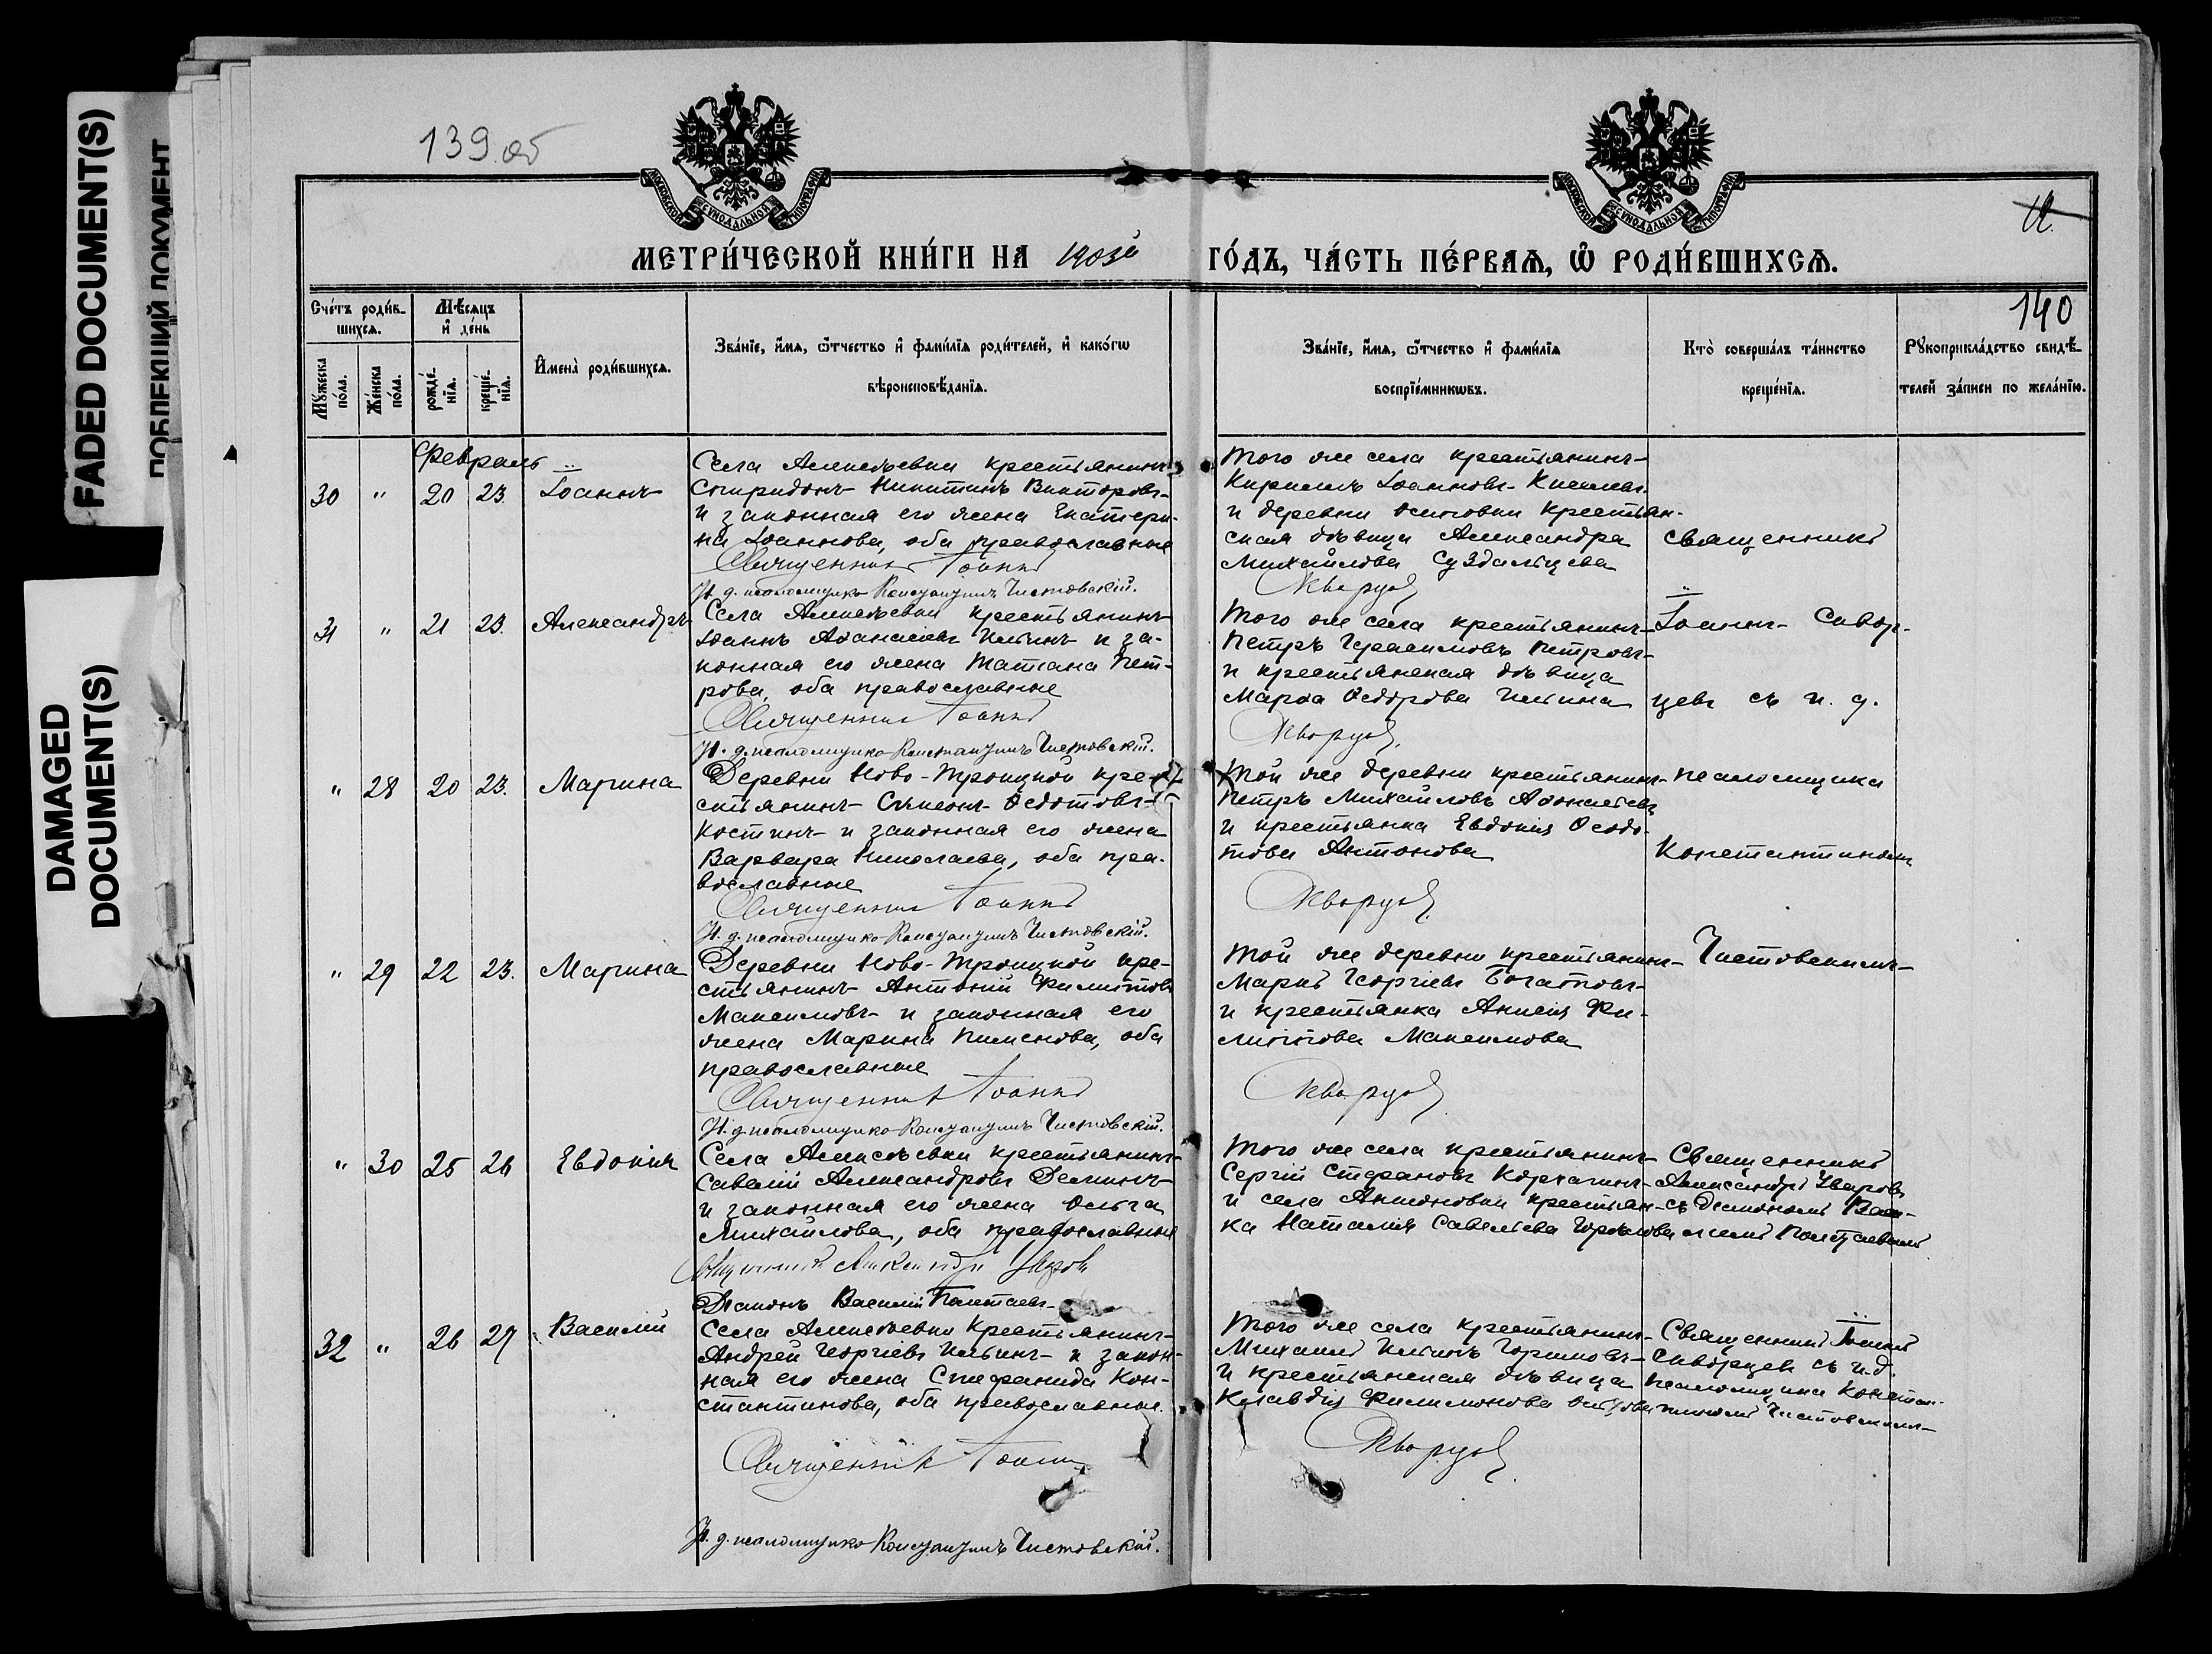 FADED DOCUMENT(S)
ПОБЛЕКШИЙ ДОКУМЕНТ
DAMAGED
DOCUMENT(S)
139 об
МОСКОВСКОЙ СѴНОДАЛЬНОЙ ТИПОГРАФІИ
МОСКОВСКОЙ СѴНОДАЛЬНОЙ ТИПОГРАФІИ
МЕТРИ́ЧЕСКОЙ КНИ́ГИ НА 1903й ГО́ДЪ, ЧА́СТЬ ПЕ́РВАѦ, Ѽ РОДИ́ВШИХСѦ.
140
Сче́тъ роди́в-
шихсѧ.
Мꙋ́жеска по́ла.
Же́нска по́ла.
Мѣ́сѧцъ
и҆ де́нь
рожде́-
нїѧ.
креще́-
нїѧ.
И҆мена̀ роди́вшихсѧ.
Зва́нїе, и҆́мѧ, ѻ҆́тчество и҆ фами́лїѧ роди́телей, и҆ како́гѡ
вѣроисповѣ́данїѧ.
Зва́нїе, и҆́мѧ, ѻ҆́тчество и҆ фами́лїѧ
воспрїе́мникѡвъ.
Кто̀ соверша́лъ та́инство
креще́нїѧ.
Рꙋкоприкла́дство свидѣ́-
телей за́писи по жела́нїю.
Февраль
30 " 20 23. Іоаннъ
Села Алексѣевки крестьянинъ
Спиридонъ Никитинъ Викторовъ
и законная его жена Екатери-
на Іоаннова, оба православные
Священникъ Іоаннъ Скворцовъ
И. д. псаломщика Константинъ Чистовскій.
Того же села крестьянинъ
Кириллъ Іоанновъ
и деревни Осиновки крестьян-
ская дѣвица Александра
Михайлова Суздальцева
31 " 21 23. Александръ
Села Алексѣевки крестьянинъ
Іоаннъ Аѳанасіевъ Ильинъ и за-
конная его жена Татіана Пет-
рова, оба православные
Священникъ Іоаннъ Скворцовъ
И. д. псаломщика Константинъ Чистовскій.
Того же села крестьянинъ
Петръ Герасимовъ Петровъ
и крестьянская дѣвица
Марѳа Ѳедорова Ильина
" 28 20 23. Марина
Деревни Ново-Троицкой кре-
стьянинъ Симеонъ Ѳедотовъ
Костинъ и законная его жена
Варвара Николаева, оба пра-
вославные
Священникъ Іоаннъ Скворцовъ
И. д. псаломщика Константинъ Чистовскій.
Той же деревни крестьянинъ
Петръ Михайловъ Аѳонасьевъ
и крестьянка Евдокія Ѳеодо-
това Антонова
" 29 22 23. Марина
Деревни Ново-Троицкой кре-
стьянинъ Антоній Филиповъ
Максимовъ и законная его
жена Марина Пименова, оба
православные
Священникъ Іоаннъ Скворцовъ
И. д. псаломщика Константинъ Чистовскій.
Той же деревни крестьянинъ
Маркъ Георгіевъ Богатовъ
и крестьянка Анисія Фи-
липпова Максимова
Священникъ
Іоаннъ Сквор-
цевъ съ и. д.
псаломщика
Константиномъ
Чистовскимъ
" 30 25 26 Евдокія
Села Алексѣевки крестьянинъ
Савелій Александровъ Деминъ
и законная его жена Ольга
Михайлова, оба православные
Священникъ Александръ Уваровъ
Діаконъ Василій Полктаевъ
Того же села крестьянинъ
Сергій Стефановъ Корчагинъ
и села Антоновки крестьян-
ка Наталія Савельева
Священникъ
Александръ Уваровъ
съ діакономъ Васи-
ліемъ Полктаевымъ
32 " 26 27 Василій
Села Алексѣевки крестьянинъ
Андрей Георгіевъ Ильинъ и закон-
ная его жена Стефанида Кон-
стантинова, оба православные.
Священникъ Іоаннъ Скворцовъ
И. д. псаломщика Константинъ Чистовскій.
Того же села крестьянинъ
Михаилъ Ильинъ Горшковъ
и крестьянская дѣвица
Клавдія Филимонова
Священникъ Іоаннъ
Скворцевъ съ и.д.
псаломщика Констан-
тиномъ Чистовскимъ